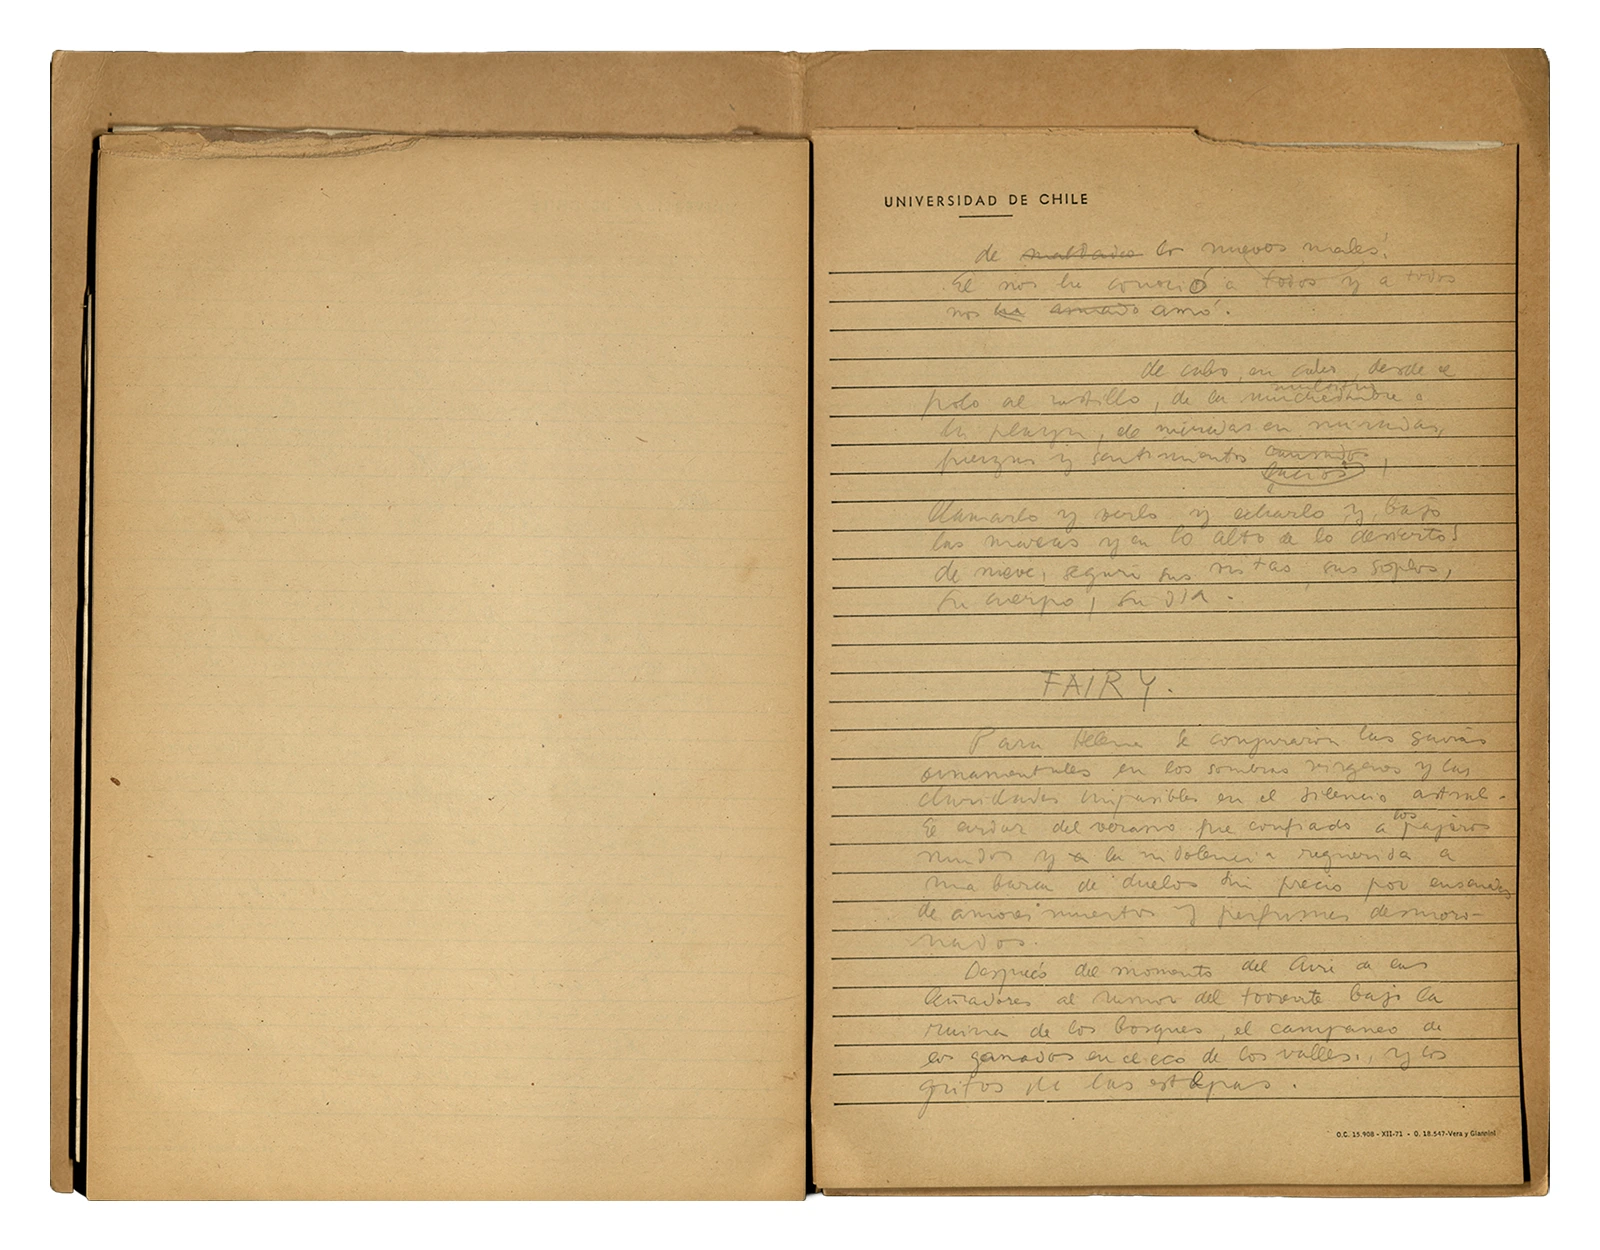 UNIVERSIDAD DE CHILE
de maldades los nuevos males!
El nos ha conoció a todos y a todos
nos ha amado amó.
de cabo en cabo, desde el
polo al castillo, de la muchedumbre a
la playa, de miradas en miradas,
fuerzas y sentimientos cansados
llamarlo y verlo y echarlo y, bajo
las mareas y en lo alto de lo desierto
de nieve, seguir sus vistas, sus soplos,
su cuerpo, su día.
FAIRY.
Para Helena se conjuraron las savias
ornamentales en las sombras vírgenes y las
claridades impasibles en el silencio astral.
El ardor del verano fue confiado a los pájaros
mudos y a la indolencia requerida a
una barca de duelos sin precio por ensenadas
de amores muertos y perfumes desmoro-
nados.
Después del momento del Aire de las
leñadores al rumor del torrente bajo la
ruina de los bosques, el campaneo de
los ganados en el eco de los valles, y los
gritos de las estepas.
O.C. 15.908 - XII-71 - O. 18.547-Vera y Giannini